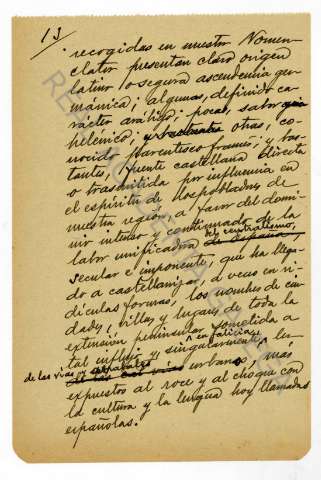 13
recogidas en nuestro Nomen-
clator presentan claro origen
latino o segura ascendencia ger-
mánica; algunas, definido ca-
rácter arábigo; pocas, sabor
helénico; otras, co-
nocido parentesco francés; y bas-
tantes, fuente castellana directa
o trasmitida por influencia en
el espíritu de los pobladores de
nuestra región, a favor del domi-
nio intenso y continuado de la
labor unificadora del centralismo,
secular e imponente, que ha llega-
do a castellanizar, a veces en ri-
dículas formas, los nombres de ciu-
dades, villas y lugares de toda la
extensión peninsular sometida a
tal influjo y singularmente en Galicia los
de las vías y arrabales urbanos, más
expuestos al roce y al choque con
la cultura y la lengua hoy llamadas
españolas.